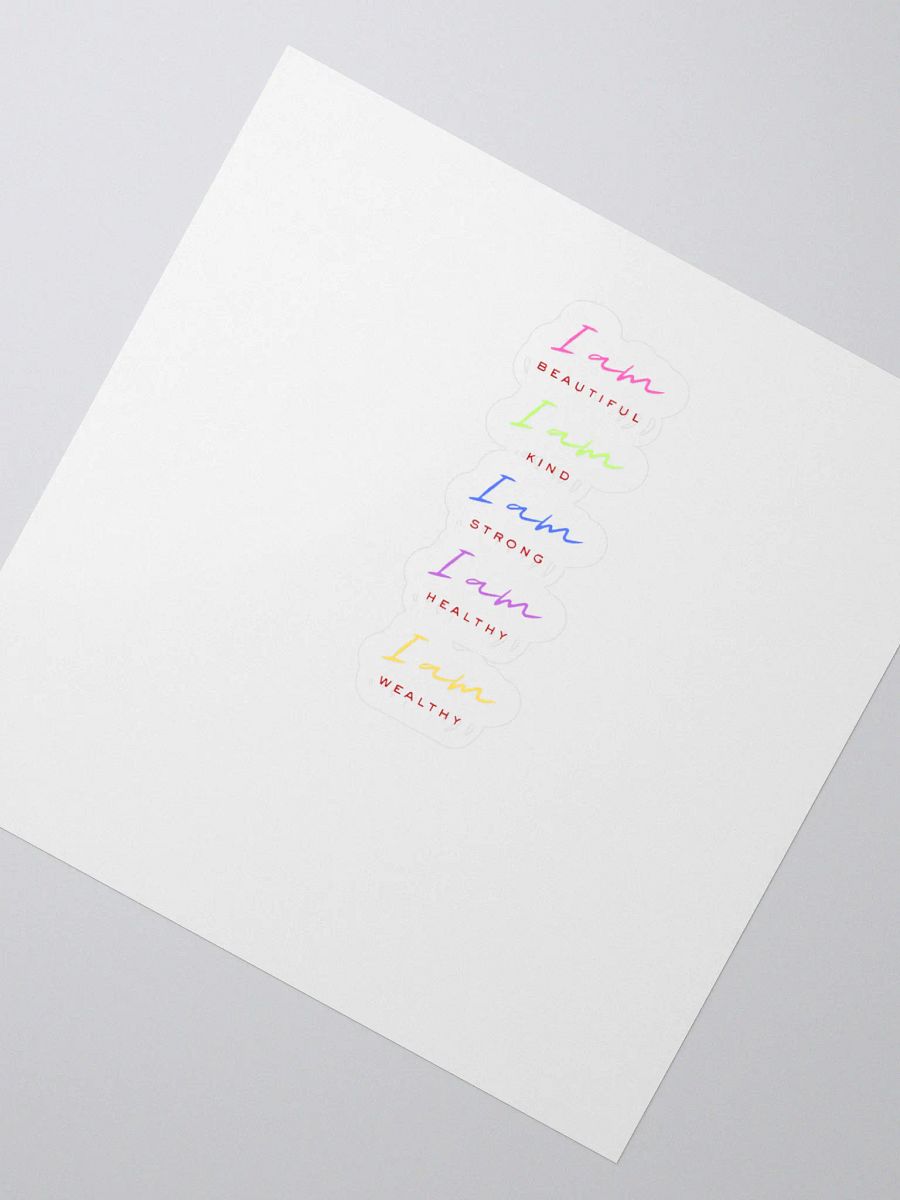 I am
BEAUTIFUL
I am
KIND
I am
STRONG
I am
HEALTHY
I am
WEALTHY